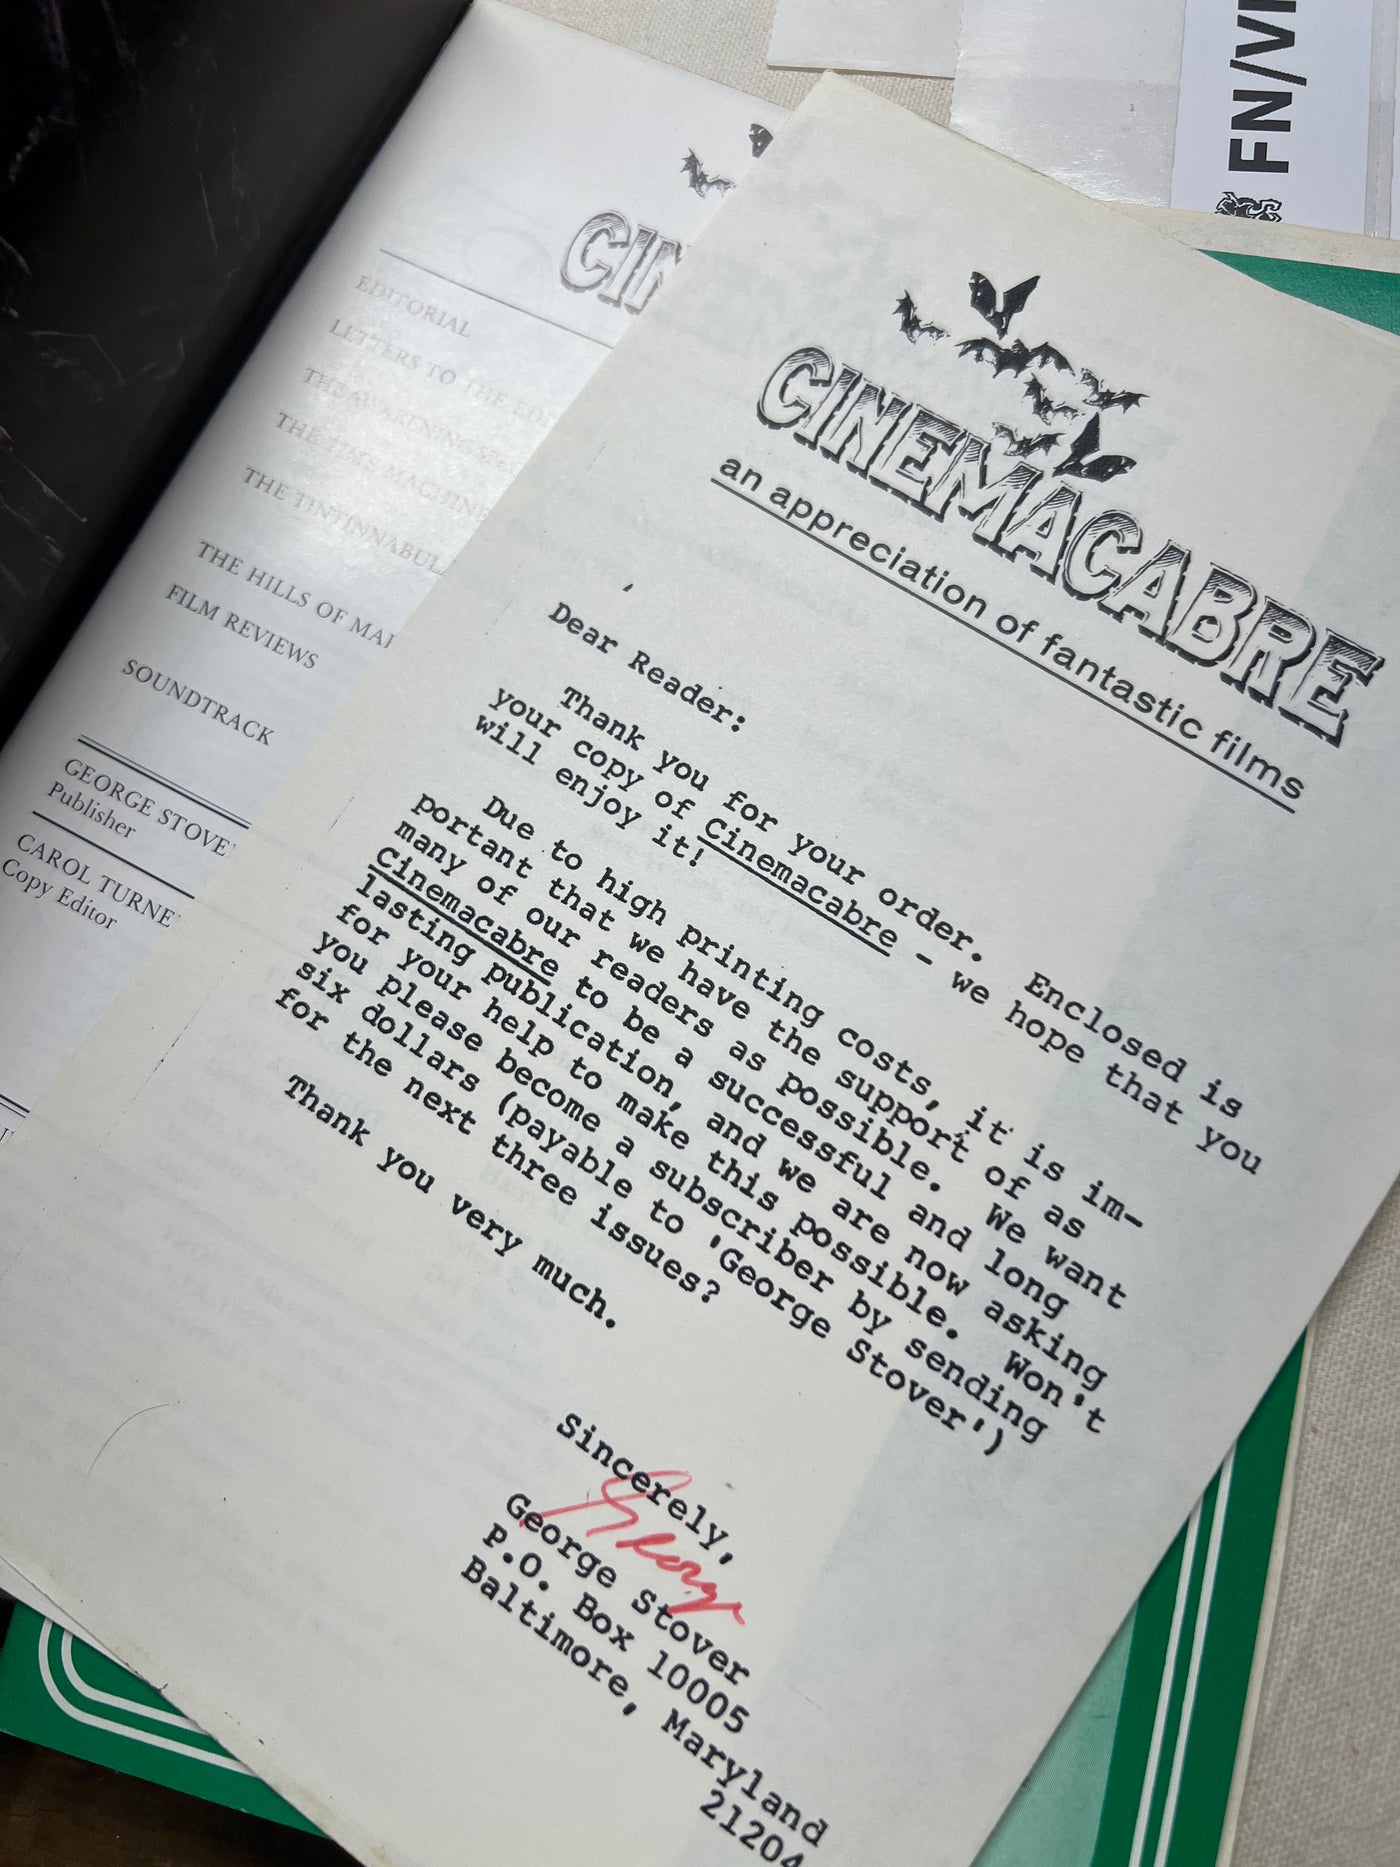 FN/V
CIN
EDITORIAL
LETTERS TO THE
THE
THE TIME MACHINE
THE TINTINNABUL
THE HILLS OF MAR
FILM REVIEWS
SOUNDTRACK
GEORGE STOVE
Publisher
CAROL TURNE
Copy Editor
CINEMACABRE
an appreciation of fantastic films
Dear Reader:
Thank you for your order. Enclosed is
your copy of Cinemacabre - we hope that you
will enjoy it!
Due to high printing costs, it is im-
portant that we have the support of as
many of our readers as possible. We want
Cinemacabre to be a successful and long
lasting publication, and we are now asking
for your help to make this possible. Won't
you please become a subscriber by sending
six dollars (payable to 'George Stover')
for the next three issues?
Thank you very much.
Sincerely,
George
George Stover
P.O. Box 10005
Baltimore, Maryland
21204